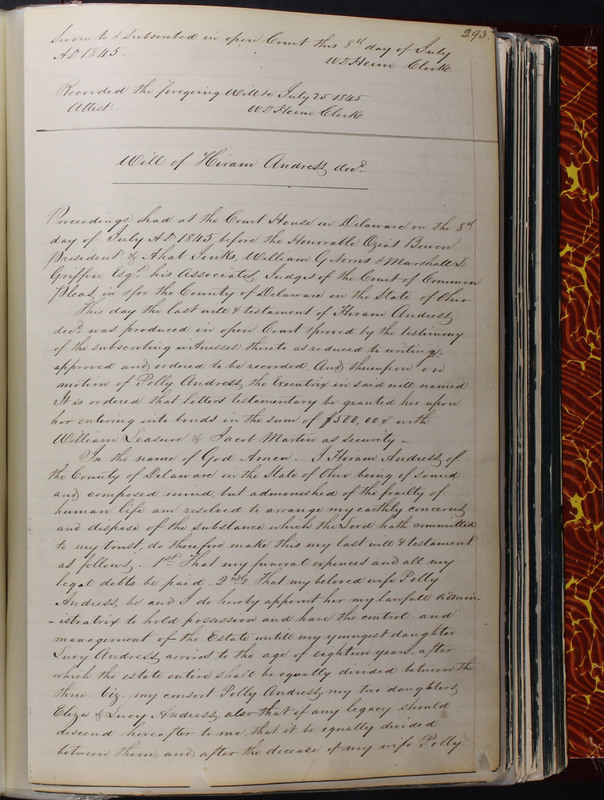 293.
Sworn to & Subscribed in open Court this 8th day of July
AD 1845. W D Heim Clerk
Recorded the foregoing Will &c July 25 1845
Attest. W D Heim Clerk
Will of Hiram Andress decd.
Proceedings had at the Court House in Delaware on the 8th
day of July AD 1845 before the Honorable Ozias Bowen
President & Ahab Jinks, William G Norris & Marshall L
Griffin Esqrs. his Associates, Judges of the Court of Common
Pleas, in & for the County of Delaware in the State of Ohio
This day the last will & testament of Hiram Andress
decd. was produced in open Court & proved by the testimony
of the subscribing witnesses thereto as reduced to writing,
approved and ordered to be recorded And thereupon on
motion of Polly Andress, the Executrix in said will named
It is ordered that letters testamentary be granted her upon
her entering into bonds in the sum of $500,00 with
William Leasure & Jacob Martin as security –
In the name of God Amen – I Hiram Andress, of
the County of Delaware in the State of Ohio being of sound
and composed mind, but admonished of the frailty of
human life am resolved to arrange my earthly concerns
and dispose of the substance which the Lord hath committed
to my trust, do therefore make this my last will & testament
as follows, – 1st That my funeral expences and all my
legal debts be paid – 2ndly That my beloved wife Polly
Andress, be and I do hereby appoint her my lawfull admin-
-istratrix to hold possession and have the control and
management of the Estate untill my youngest daughter
Lucy Andress arrives to the age of eighteen years, after
which the estate entire shall be equally divided between the
three. Viz. my consort Polly Andress, my two daughters,
Eliza & Lucy Andress, also that if any legacy should
descend hereafter to me, that it be equally divided
between them, and after the decease of my wife Polly